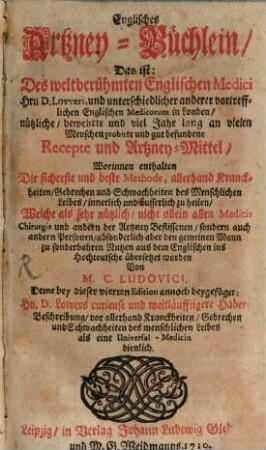 Englisches
Artzney-Büchlein/
Das ist:
Des weltberühmten Englischen Medici
Hrn D. Lovveri, und unterschiedlicher anderer vortreff-
lichen Englischen Medicorum in Londen/
nützliche/ bewehrte und viel Jahr lang an vielen
Menschen probirte und gut befundene
Recepte und Artzney-Mittel/
Worinnen enthalten
Die sicherste und beste Methode, allerhand Kranck-
heiten/ Gebrechen und Schwachheiten des Menschlichen
Leibes/ innerlich und äuserlich zu heilen/
Welche als sehr nützlich/ nicht allein allen Medicis
Chirurgis und andern der Artzney Beflissenen/ sondern auch
andern Personen/ absonderlich aber den gemeinen Mann
zu sonderbahren Nutzen aus dem Englischen ins
Hochteutsche übersetzet worden
Von
M. C. LUDOVICI.
Deme bey dieser vierten Edition annoch beygefüget:
Hn. D. Lowers curieuse und weitläufftigere Haber-
Beschreibung/ vor allerhand Kranckheiten/ Gebrechen
und Schwachheiten des menschlichen Leibes
als eine Universal-Medicin
dienlich.
Leipzig/ in Verlag Johann Ludwig
und M. G. Weidmanns. 1710.